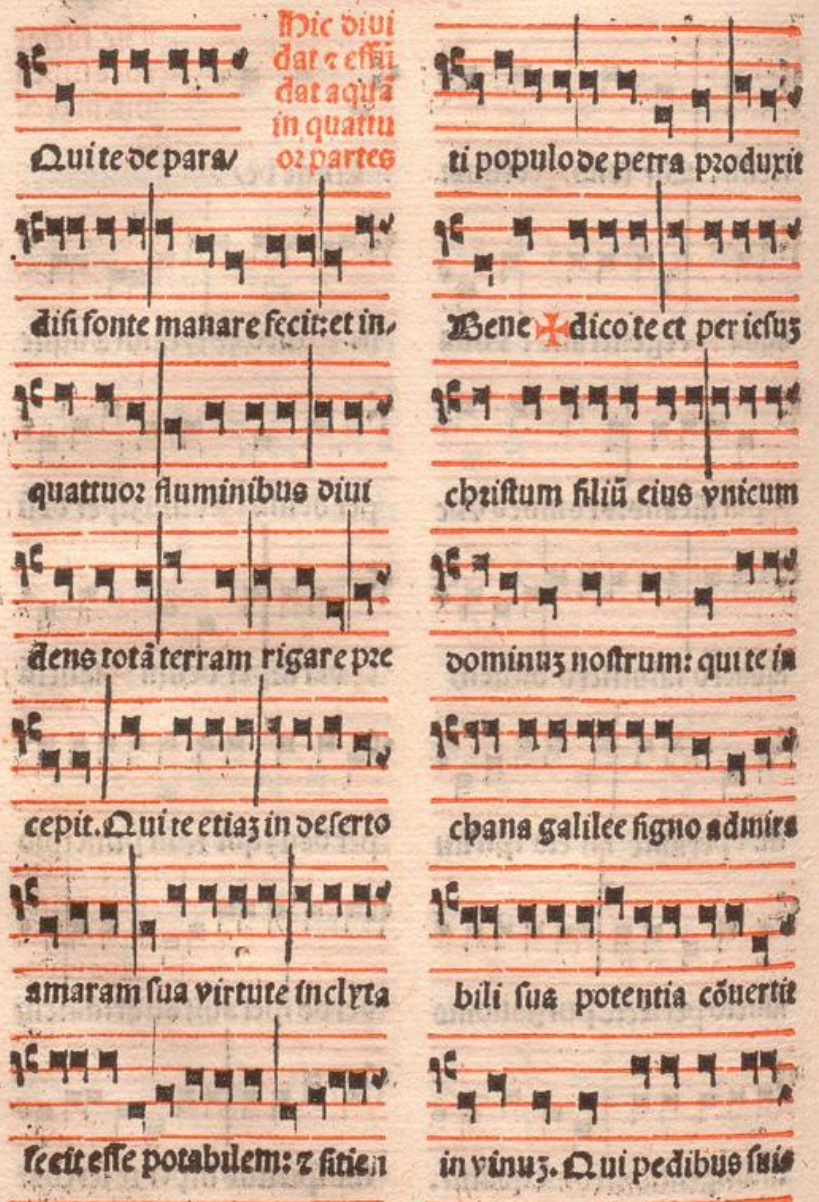 Hic diui
dat ⁊ effũ
dat aquã
in quattu
or partes
Qui te de para/
disi fonte manare fecit: et in/
quattuor fluminibus diui
dens totã terram rigare pre
cepit. Qui te etiaz in deserto
amaram sua virtute inclyta
fecit esse potabilem: ⁊ sitien
ti populo de petra produxit
Bene ✠ dico te et per iesuz
christum filiũ eius vnicum
dominuz nostrum: qui te in
chana galilee signo admira
bili sua potentia cõuertit
in vinuz. Qui pedibus suis